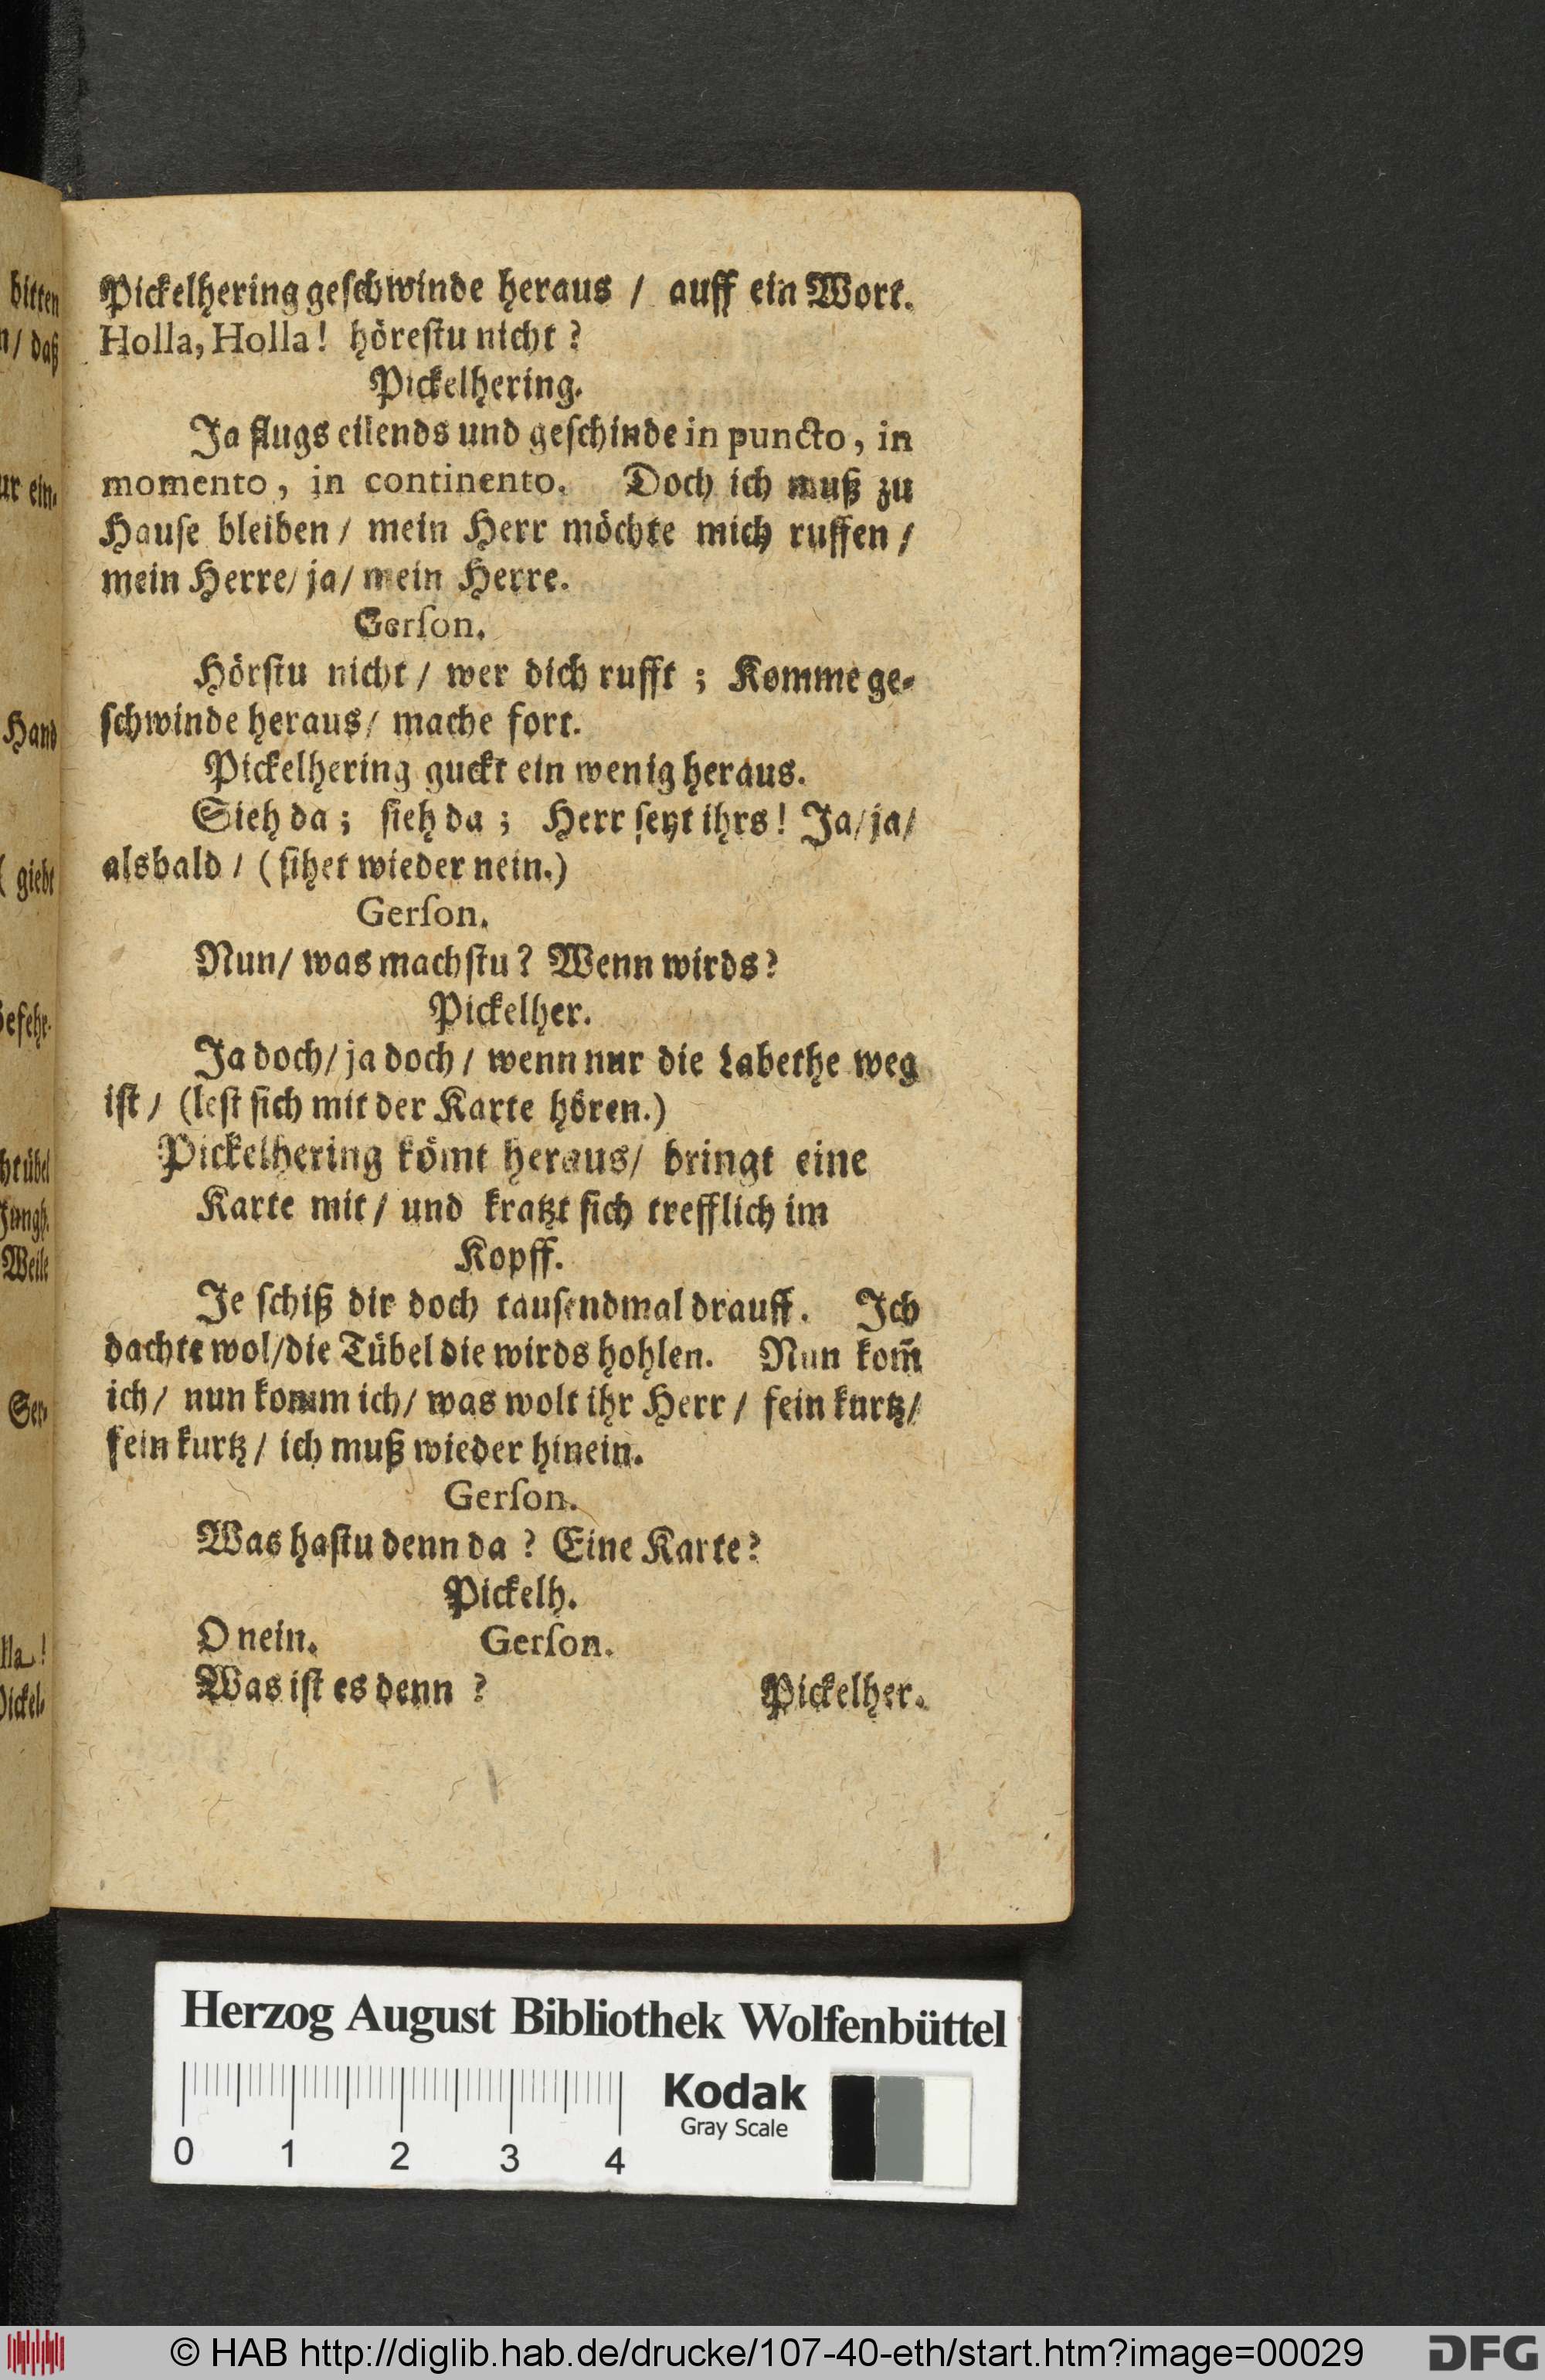 Pickelhering geſchwinde heraus / auff ein Wort.
Holla, Holla! höreſtu nicht?
Pickelhering.
Ja flugs eilends und geſchinde in puncto, in
momento, in continento. Doch ich muß zu
Hauſe bleiben / mein Herr möchte mich ruffen /
mein Herre/ ja/ mein Herre.
Gerſon.
Hörſtu nicht / wer dich rufft ; Komme ge-
ſchwinde heraus/ mache fort.
Pickelhering guckt ein wenig heraus.
Sieh da ; ſieh da ; Herr ſeyt ihrs! Ja/ ja/
alsbald / (ſihet wieder nein.)
Gerſon.
Nun/ was machſtu? Wenn wirds?
Pickelher.
Ja doch/ ja doch / wenn nur die Labethe weg
iſt / (leſt ſich mit der Karte hören.)
Pickelhering kömt heraus/ bringt eine
Karte mit / und kratzt ſich trefflich im
Kopff.
Je ſchiß dir doch tauſendmal drauff. Ich
dachte wol/die Tübel die wirds hohlen. Nun kom̃
ich/ nun komm ich/ was wolt ihr Herr / fein kurtz/
fein kurtz / ich muß wieder hinein.
Gerſon.
Was haſtu denn da ? Eine Karte?
Pickelh.
O nein. Gerſon.
Was iſt es denn ? Pickelher.
bitten
n/ daß
ur ein-
Hand
( giebt
htübel
Jungh.
Weile
Ger-
lla!
Pickel-
Herzog August Bibliothek Wolfenbüttel
Kodak
Gray Scale
0 1 2 3 4
© HAB http://diglib.hab.de/drucke/107-40-eth/start.htm?image=00029
DFG